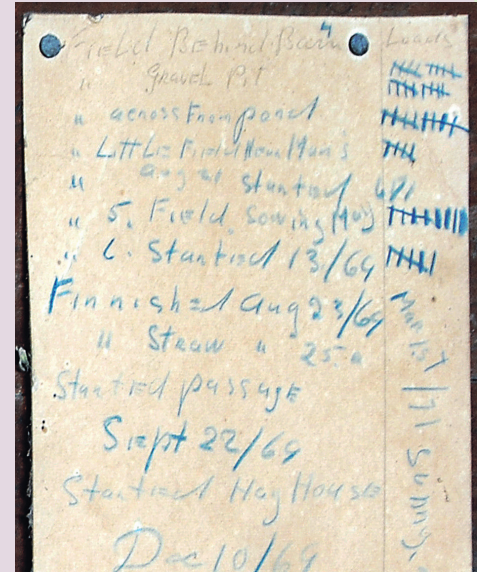 Field Behind Barn Loads
" Gravel Pit
" across From pond
" Little Field
" Aug Startied
" 5. Field Sowing Hay
" 6. Startied 13/69
Finnished Aug 23/69
" Straw " 25 "
Startied passage
Siept 22/69
Startied Hay House
Dec 10/69